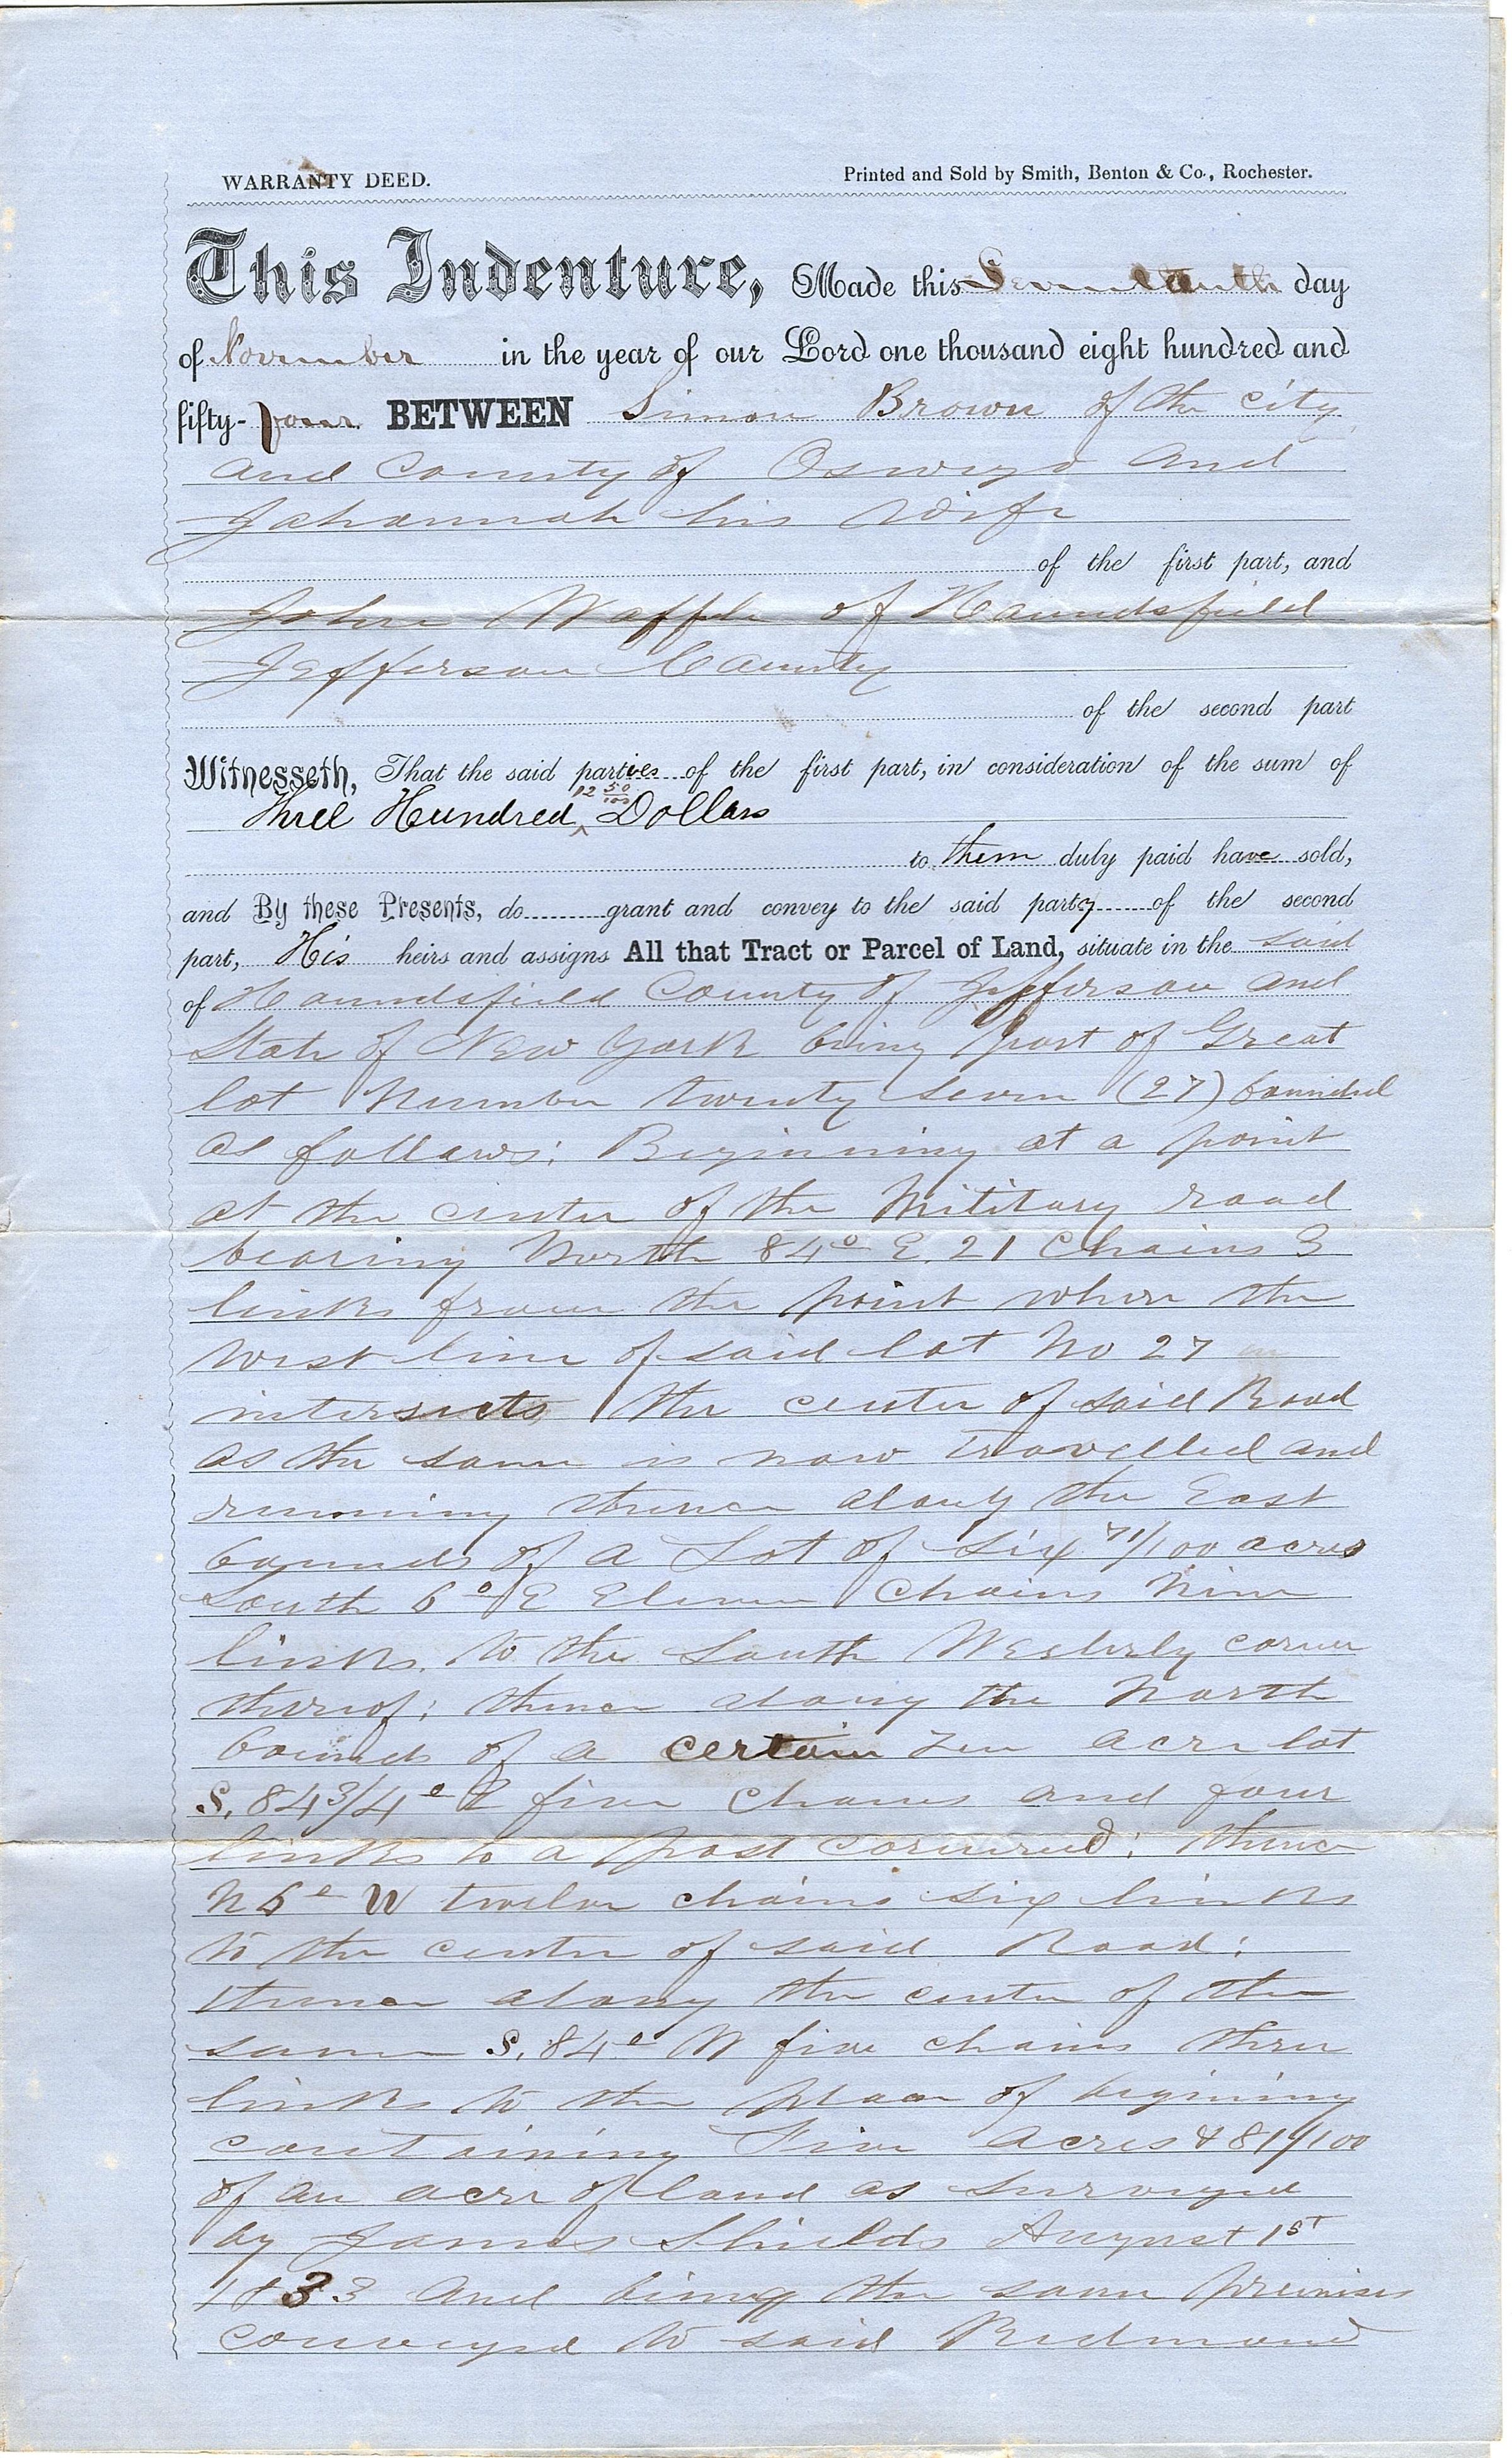 WARRANTY DEED.
Printed and Sold by Smith, Benton & Co., Rochester.
This Indenture, Made this Seventeenth day
of November in the year of our Lord one thousand eight hundred and
fifty-four. BETWEEN Simon Brown of the city
and County of Oswego and
Johannah his Wife
of the first part, and
John Waffle of Houndsfield
Jefferson County
of the second part
Witnesseth, That the said parties of the first part, in consideration of the sum of
Three Hundred 12 50/100 Dollars
to them duly paid have sold,
and By these Presents, do grant and convey to the said party of the second
part, His heirs and assigns All that Tract or Parcel of Land, situate in the
of Houndsfield County of Jefferson and
State of New York being part of Great
lot Number twenty seven (27) bounded
as follows: Beginning at a point
at the center of the Military road
bearing North 84° E. 21 Chains 3
links from the point where the
West line of said lot No 27
intersects the center of said Road
as the same is now travelled and
running thence along the East
bounds of a Lot of six 71/100 acres
South 6° E Eleven Chains Nine
links to the South Westerly corner
thereof; thence along the North
bounds of a certain Ten acre lot
S. 84 3/4° E five Chains and four
links to a post cornered; thence
N 6° W twelve chains six links
to the center of said Road;
thence along the center of the
same S. 84° W five chains three
links to the place of begining
containing Five acres & 81/100
of an acre of land as surveyed
by James Shields August 1st
1833 and being the same premises
conveyed to said Redmond